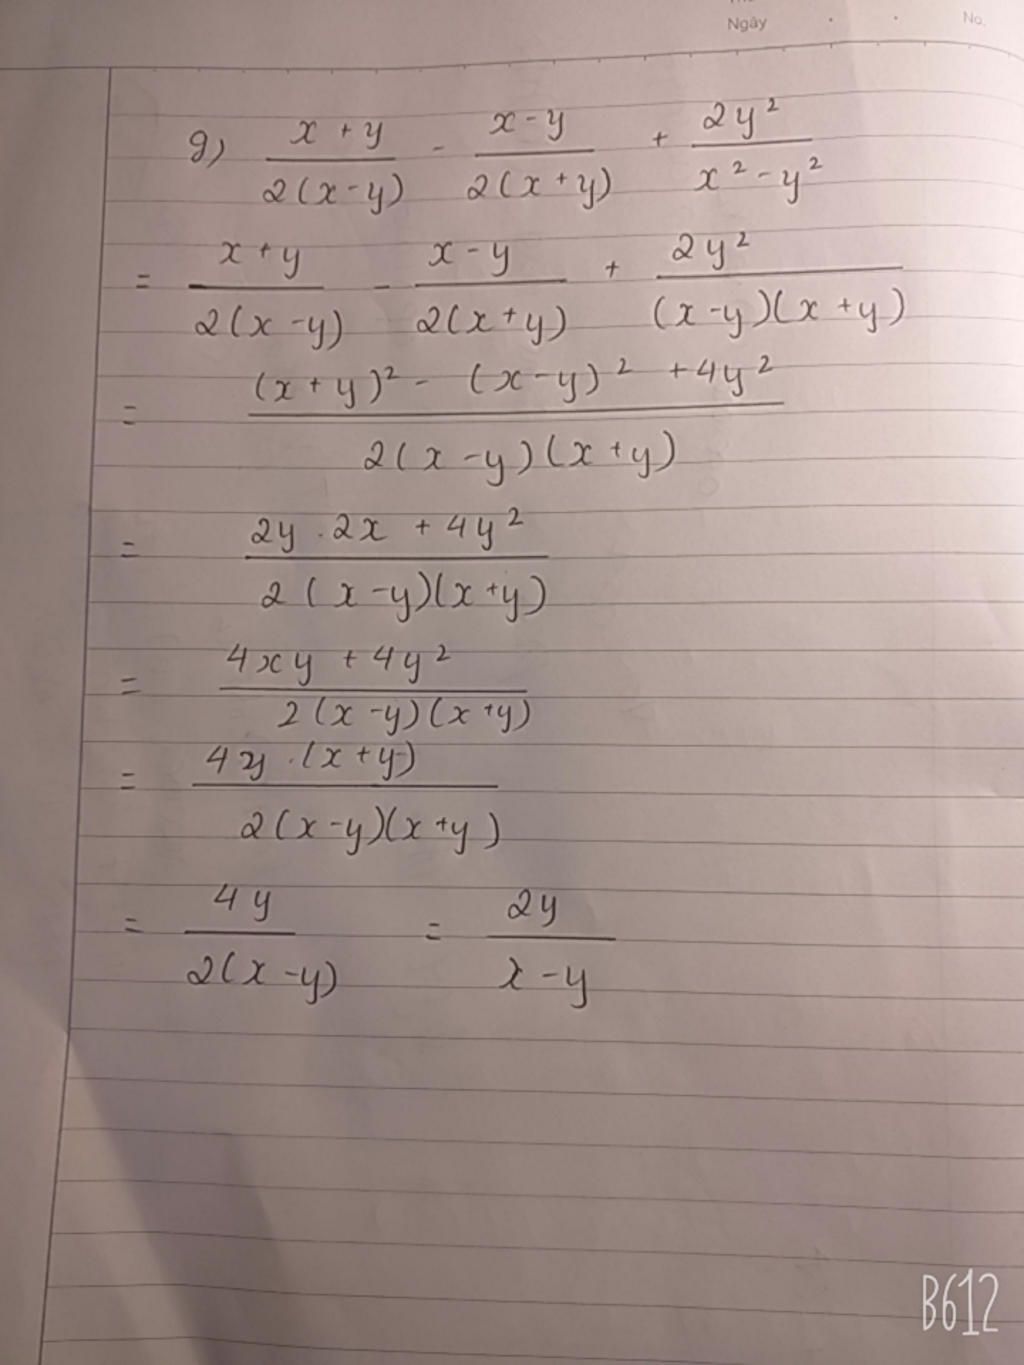 Ngày . . No.
g) \frac{x+y}{2(x-y)} - \frac{x-y}{2(x+y)} + \frac{2y^2}{x^2-y^2}
= \frac{x+y}{2(x-y)} - \frac{x-y}{2(x+y)} + \frac{2y^2}{(x-y)(x+y)}
= \frac{(x+y)^2 - (x-y)^2 + 4y^2}{2(x-y)(x+y)}
= \frac{2y . 2x + 4y^2}{2(x-y)(x+y)}
= \frac{4xy + 4y^2}{2(x-y)(x+y)}
= \frac{4y .(x+y)}{2(x-y)(x+y)}
= \frac{4y}{2(x-y)} = \frac{2y}{x-y}
B612